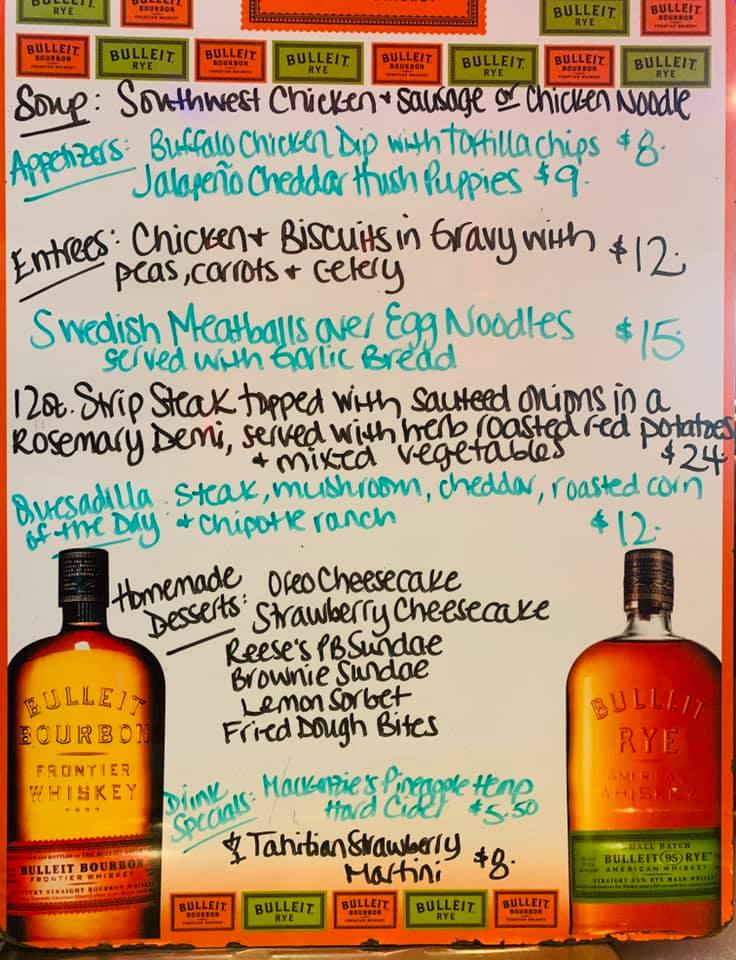 BULLEIT RYE
BULLEIT BOURBON FRONTIER WHISKEY
WHISKEY
BULLEIT RYE
BULLEIT BOURBON FRONTIER WHISKEY
BULLEIT BOURBON FRONTIER WHISKEY
BULLEIT RYE
BULLEIT BOURBON FRONTIER WHISKEY
BULLEIT RYE
BULLEIT BOURBON FRONTIER WHISKEY
BULLEIT RYE
BULLEIT BOURBON FRONTIER WHISKEY
BULLEIT RYE
Soup: Southwest Chicken + Sausage or Chicken Noodle
Appetizers: Buffalo Chicken Dip with Tortilla chips $8.
Jalapeño Cheddar Hush Puppies $9.
Entrees: Chicken + Biscuits in Gravy with $12.
peas, carrots + celery
Swedish Meatballs over Egg Noodles $15.
served with Garlic Bread
12oz. Strip Steak topped with sauteed onions in a
Rosemary Demi, served with herb roasted red potatoes
+ mixed vegetables $24.
Quesadilla of the Day: steak, mushroom, cheddar, roasted corn
+ chipotle ranch $12.
Homemade Desserts: Oreo Cheesecake
Strawberry Cheesecake
Reese's PB Sundae
Brownie Sundae
Lemon Sorbet
Fried Dough Bites
Drink Specials: Mackenzie's Pineapple Hemp
Hard Cider $5.50
Tahitian Strawberry
Martini $8.
BULLEIT
BOURBON
FRONTIER
WHISKEY
BULLEIT BOURBON
FRONTIER WHISKEY
KENTUCKY STRAIGHT BOURBON WHISKEY
BULLEIT
RYE
AMERICAN
WHISKEY
SMALL BATCH
BULLEIT 95 RYE
AMERICAN WHISKEY
STRAIGHT 95% RYE MASH WHISKEY
BULLEIT BOURBON FRONTIER WHISKEY
BULLEIT RYE
BULLEIT BOURBON FRONTIER WHISKEY
BULLEIT RYE
BULLEIT BOURBON FRONTIER WHISKEY